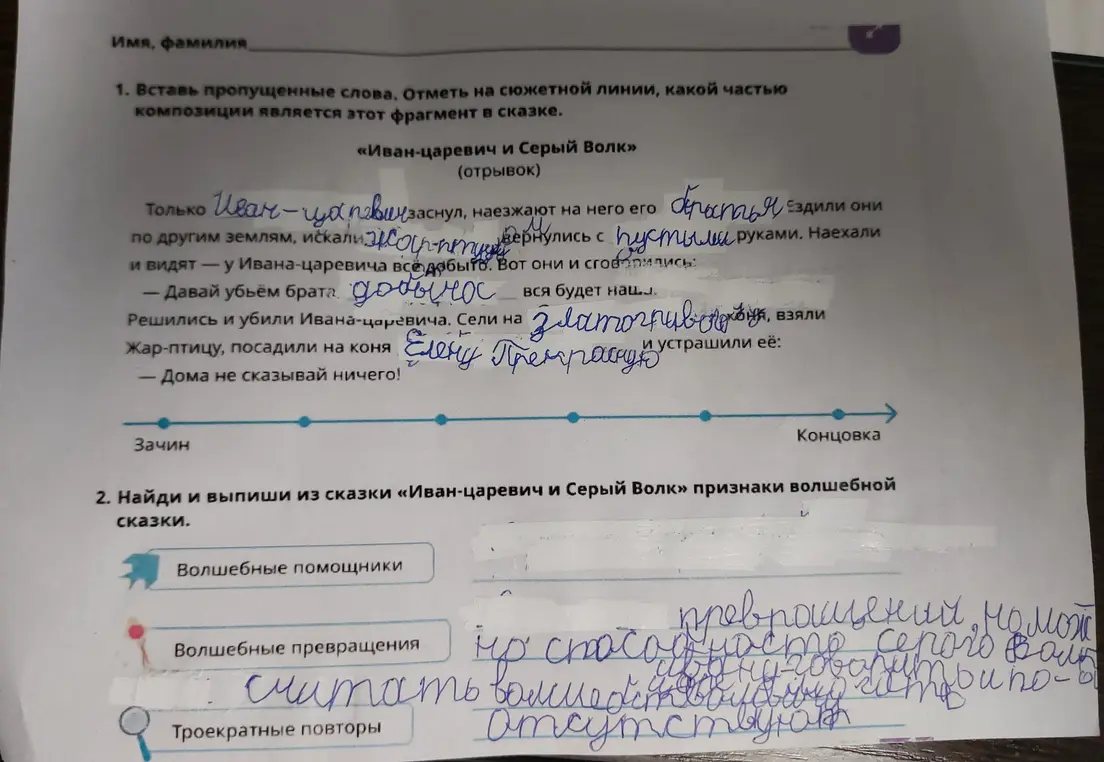 Имя, фамилия
1. Вставь пропущенные слова. Отметь на сюжетной линии, какой частью
композиции является этот фрагмент в сказке.
«Иван-царевич и Серый Волк»
(отрывок)
Только Иван-царевич заснул, наезжают на него его братья Ездили они
по другим землям, искали Жар-птицу вернулись с пустыми руками. Наехали
и видят — у Ивана-царевича всё добыто. Вот они и сговорились:
— Давай убьём брата, добыча вся будет наша.
Решились и убили Ивана-царевича. Сели на златогривого коня, взяли
Жар-птицу, посадили на коня Елену Прекрасную и устрашили её:
— Дома не сказывай ничего!
Зачин
Концовка
2. Найди и выпиши из сказки «Иван-царевич и Серый Волк» признаки волшебной
сказки.
Волшебные помощники
превращений, но мож
Волшебные превращения
но способность серого
говорить и по-
считать
Троекратные повторы
отсутствуют